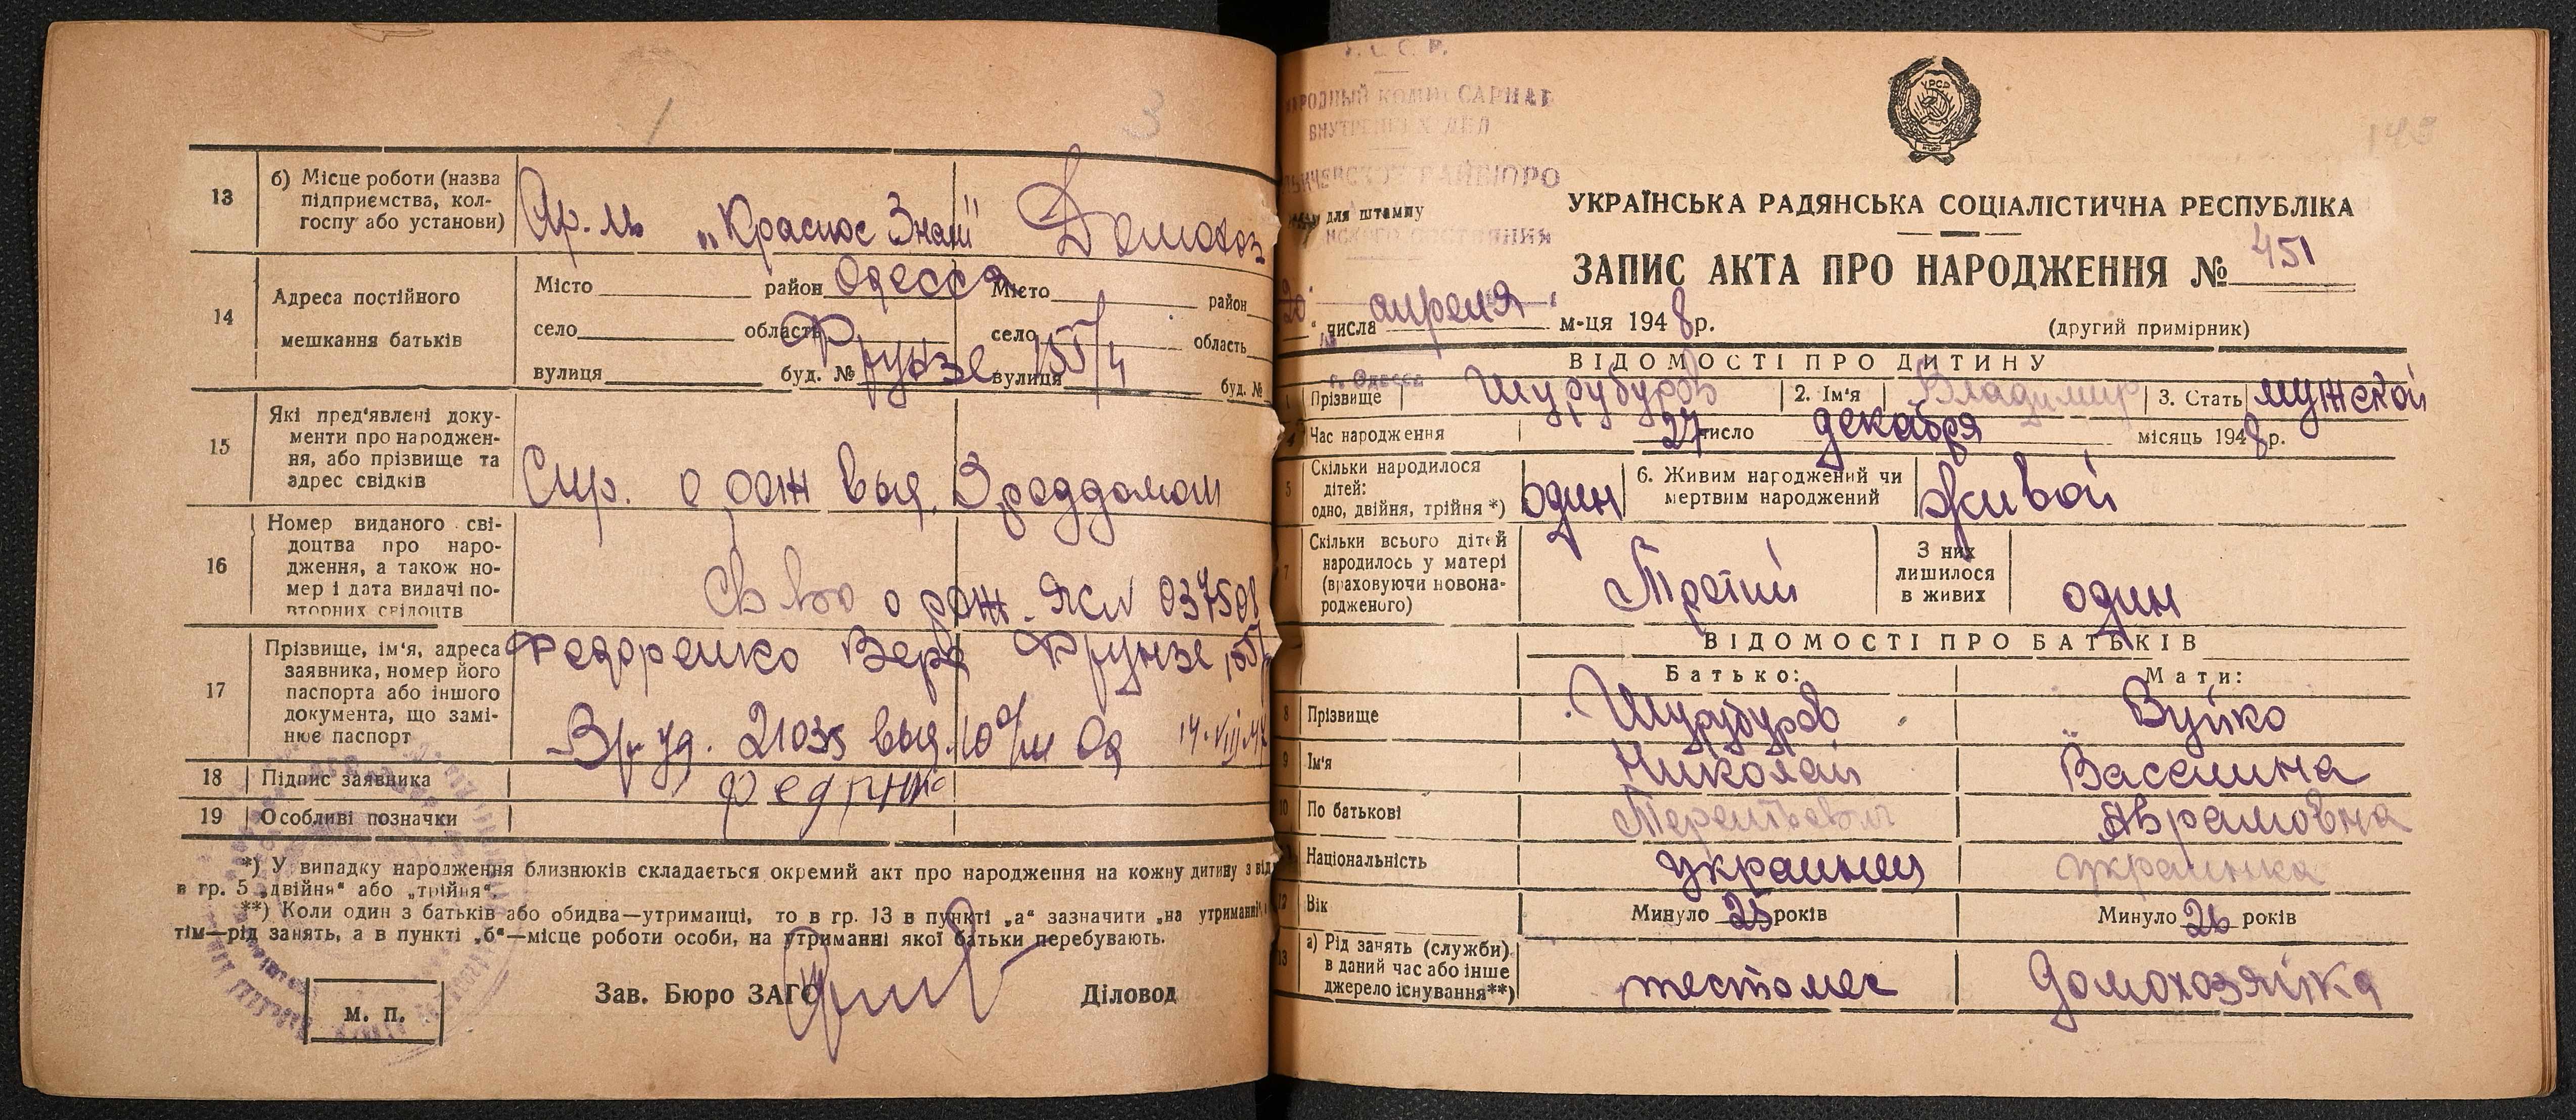 13
б) Місце роботи (назва
підприємства, кол-
госпу або установи)
„Красное Знам"
Домохоз
14
Адреса постійного
мешкання батьків
Місто район Одесса Місто район
село область село область
вулиця буд. № Фрунзе 155/4 вулиця буд. №
15
Які пред'явлені доку-
менти про народжен-
ня, або прізвище та
адрес свідків
о рож выд. 3 роддомом
16
Номер виданого сві-
доцтва про наро-
дження, а також но-
мер і дата видачі по-
вторних свідоцтв
Св во о рож. 037508
17
Прізвище, ім'я, адреса
заявника, номер його
паспорта або іншого
документа, що замі-
нює паспорт
Федоренко Вера Фрунзе 155/
Вр. уд. 21035 выд. 10 о/м Од 14.VIII.47
18 Підпис заявника
19 Особливі позначки
*) У випадку народження близнюків складається окремий акт про народження на кожну дитину з від
в гр. 5 „двійня" або „трійня"
**) Коли один з батьків або обидва—утриманці, то в гр. 13 в пункті „а" зазначити „на утриманні"
тім—рід занять, а в пункті „б"—місце роботи особи, на утриманні якої батьки перебувають.
м. п.
Зав. Бюро ЗАГС
Діловод
НАРОДНЫЙ КОМИССАРИАТ
ВНУТРЕННИХ ДЕЛ
РАЙБЮРО
для штампу
г. Одесса
143
УРСР
УКРАЇНСЬКА РАДЯНСЬКА СОЦІАЛІСТИЧНА РЕСПУБЛІКА
ЗАПИС АКТА ПРО НАРОДЖЕННЯ № 451
20 числа апреля м-ця 1948 р.
(другий примірник)
ВІДОМОСТІ ПРО ДИТИНУ
1 Прізвище Шурубуров 2. Ім'я Владимир 3. Стать мужской
4 Час народження 27 число декабря місяць 1948 р.
5 Скільки народилося
дітей:
одно, двійня, трійня *)
один
6. Живим народжений чи
мертвим народжений
живой
7 Скільки всього дітей
народилось у матері
(враховуючи новона-
родженого)
Третий
З них
лишилося
в живих
один
ВІДОМОСТІ ПРО БАТЬКІВ
Батько: Мати:
8 Прізвище Шурубуров Вуйко
9 Ім'я Николай Васелина
10 По батькові Терентьевич Аврамовна
Національність украинец украинка
12 Вік Минуло 25 років Минуло 26 років
13 а) Рід занять (служби)
в даний час або інше
джерело існування**)
тестомес домохозяйка